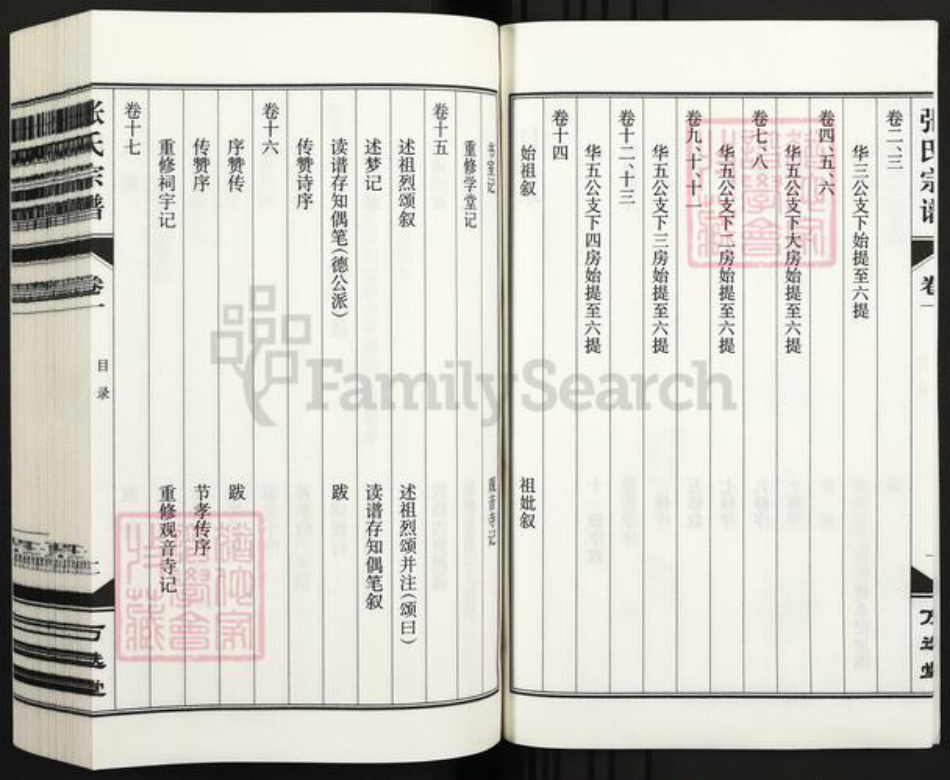 张氏宗谱
卷一
卷二、三
华三公支下始提至六提
卷四、五、六
华五公支下大房始提至六提
卷七、八
华五公支下二房始提至六提
卷九、十、十一
华五公支下三房始提至六提
卷十二、十三
华五公支下四房始提至六提
卷十四
始祖叙
祖妣叙
书室记
观音寺记
重修学堂记
卷十五
述祖烈颂叙
述祖烈颂并注(颂曰)
述梦记
读谱存知偶笔叙
读谱存知偶笔(德公派)
跋
传赞诗序
卷十六
序赞传
跋
传赞序
节孝传序
重修祠宇记
重修观音寺记
卷十七
张氏宗谱
卷一
目录
FamilySearch